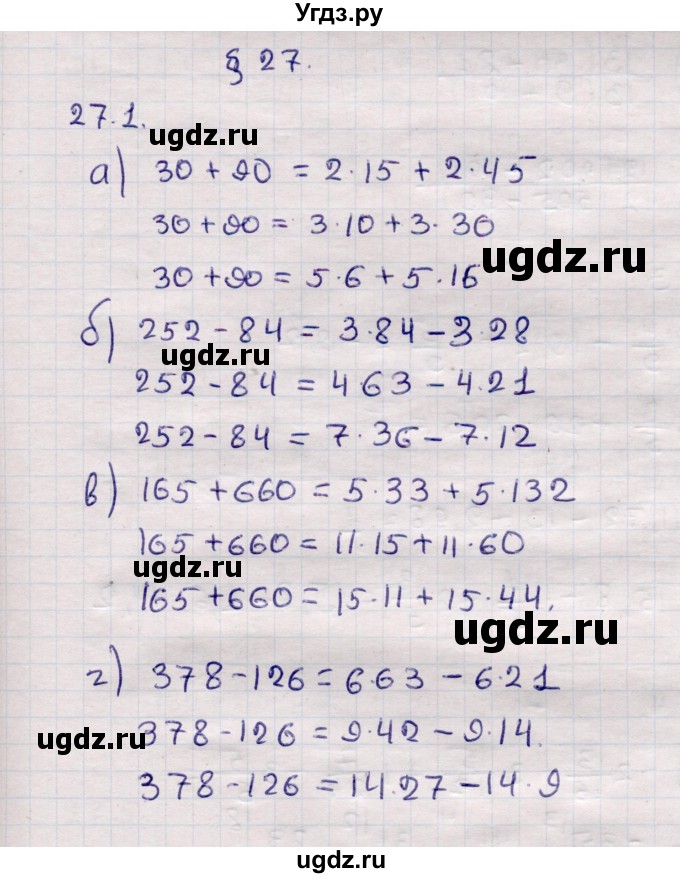 Угдз.ру
§ 27.
27.1.
ugdz.ru
а) 30 + 90 = 2·15 + 2·45
30 + 90 = 3·10 + 3·30
ugdz.ru
30 + 90 = 5·6 + 5·16
б) 252 - 84 = 3·84 - 3·28
ugdz.ru
252 - 84 = 4·63 - 4·21
252 - 84 = 7·36 - 7·12
в) 165 + 660 = 5·33 + 5·132
165 + 660 = 11·15 + 11·60
ugdz.ru
165 + 660 = 15·11 + 15·44.
ugdz.ru
г) 378 - 126 = 6·63 - 6·21
378 - 126 = 9·42 - 9·14.
ugdz.ru
378 - 126 = 14·27 - 14·9
ugdz.ru